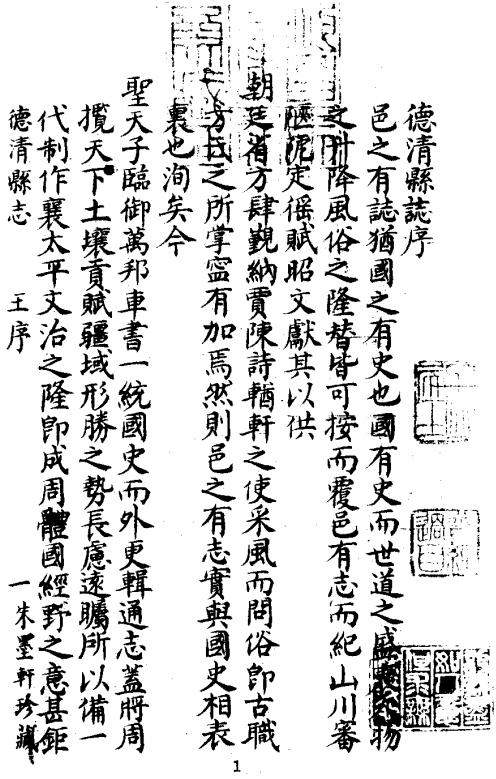 德清縣誌序
邑之有誌猶國之有史也國有史而世道之盛人物
之升降風俗之隆替皆可按而覆邑有志而紀山川審
阨定徭賦昭文獻其以供
朝廷省方肆覲納賈陳詩輶軒之使采風而問俗卽古職
方氏之所掌寍有加焉然則邑之有志實與國史相表
裏也洵矣今
聖天子臨御萬邦車書一統國史而外更輯通志蓋將周
攬天下土壤貢賦疆域形勝之勢長慮遠矚所以備一
代制作襄太平文治之隆卽成周體國經野之意甚鉅
德清縣志 王序 一 朱墨軒珍藏
1